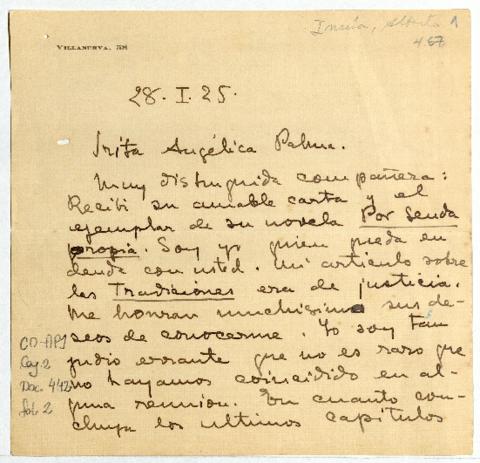 Insúa, Alberto A
467
VILLANUEVA, 38
28. I. 25.
Srita Angélica Palma.
Muy distinguida compañera:
Recibí su amable carta y el
ejemplar de su novela Por senda
propia. Soy yo quien queda en
deuda con usted. Mi artículo sobre
las Tradiciones era de justicia.
Me honran muchísimo sus de-
seos de conocerme. Yo soy tan
judío errante que no es raro que
no hayamos coincidido en al-
guna reunión. En cuanto con-
cluya los últimos capítulos
CO-AP1
Caj. 2
Doc. 442
fol. 2